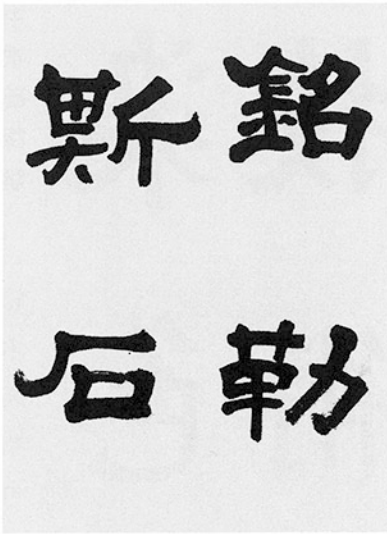 銘勒
斯石